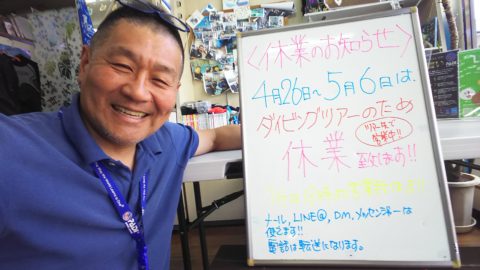 〈休業のお知らせ〉
4月26日～5月6日は、
ダイビングツアーのため
ツアー先で
営業中!!
休業致しまあ!!
メール,LINE@,DM,メッセンジャーな
使えます!!
電話は転送になります。
PADI